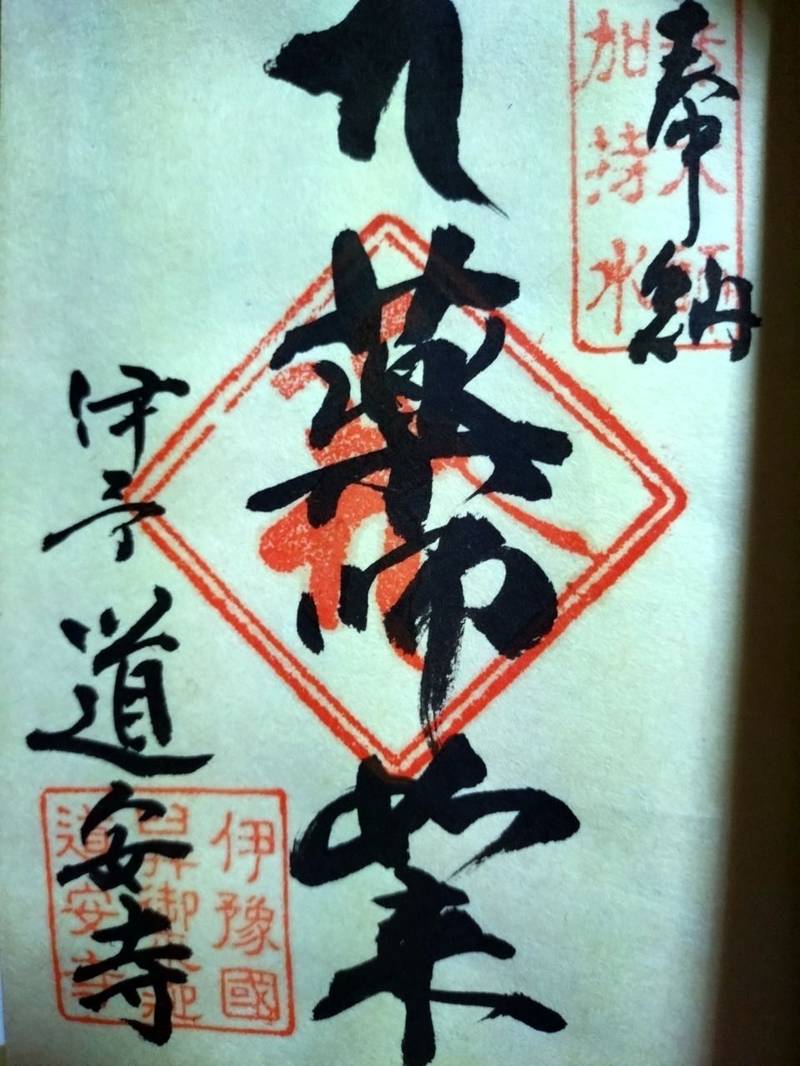 奉納
加持水
薬師如来
伊予 道安寺
伊豫國
臼井御来迎
道安寺